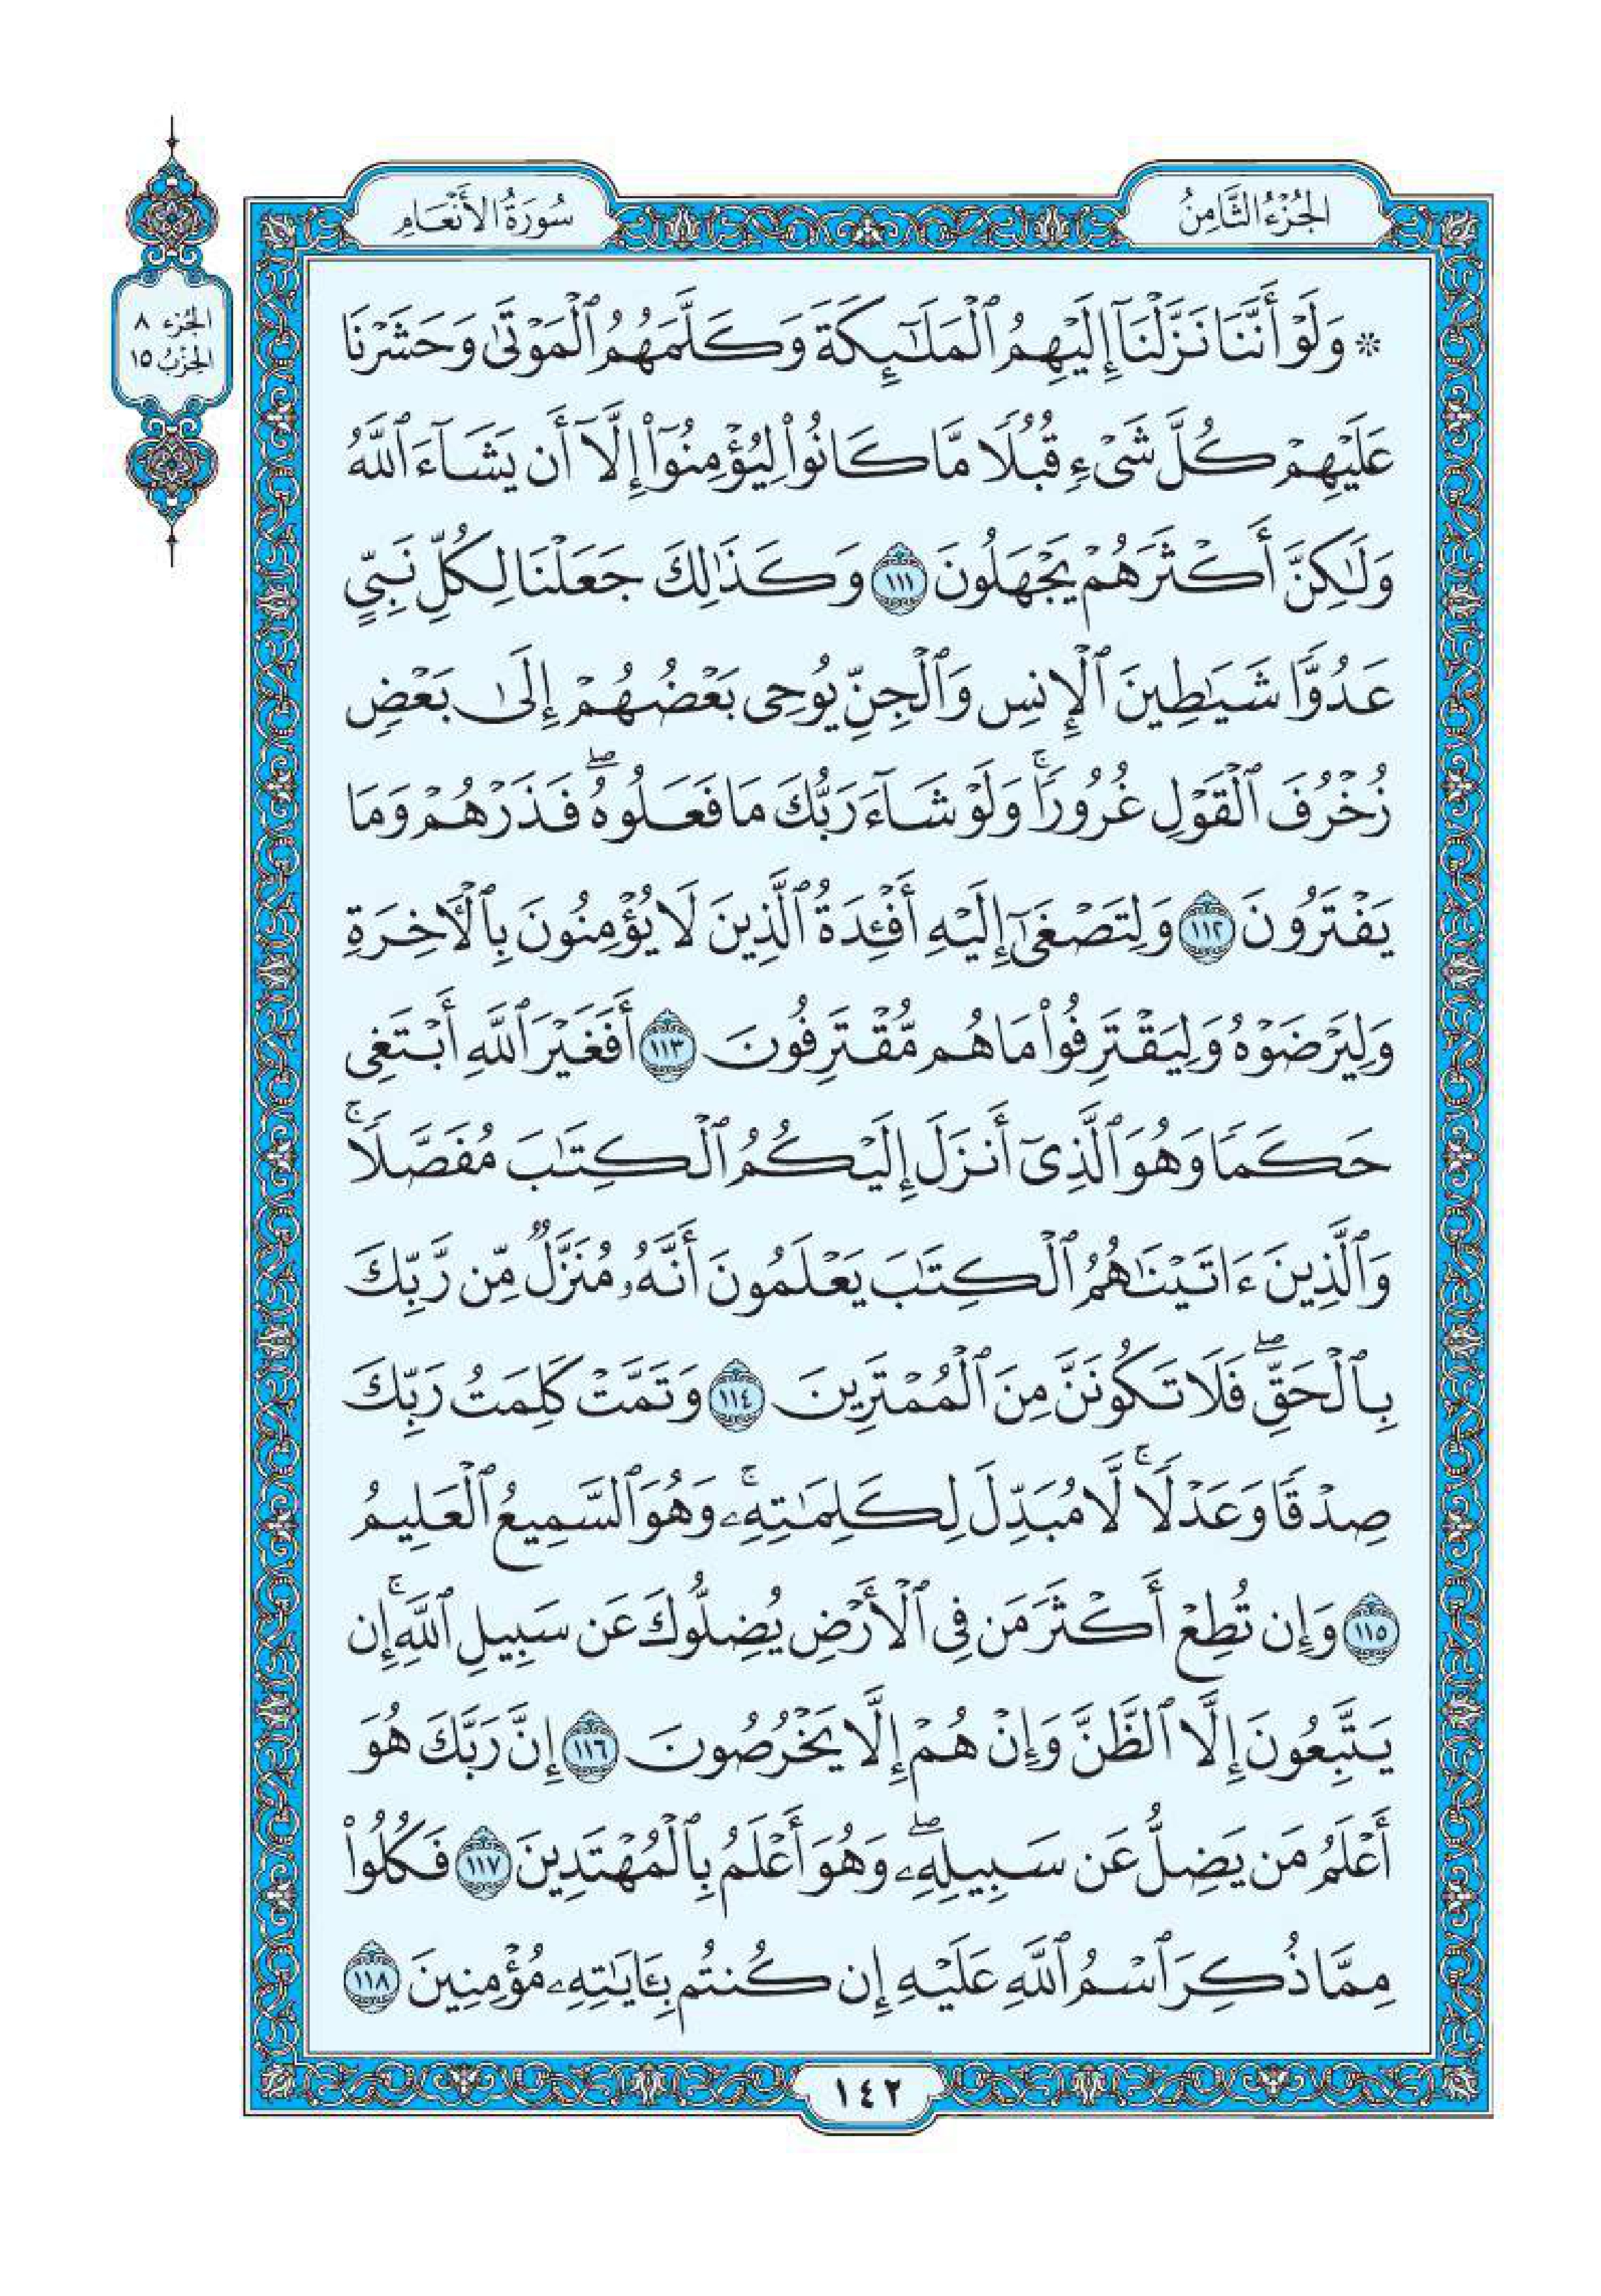 الجُزْءُ الثَّامِنُ
سُورَةُ الأَنْعَامِ
الجُزْء ٨
الحِزْبُ ١٥
۞ وَلَوْ أَنَّنَا نَزَّلْنَآ إِلَيْهِمُ ٱلْمَلَـٰٓئِكَةَ وَكَلَّمَهُمُ ٱلْمَوْتَىٰ وَحَشَرْنَا
عَلَيْهِمْ كُلَّ شَىْءٍ قُبُلًا مَّا كَانُوا۟ لِيُؤْمِنُوٓا۟ إِلَّآ أَن يَشَآءَ ٱللَّهُ
وَلَـٰكِنَّ أَكْثَرَهُمْ يَجْهَلُونَ ١١١ وَكَذَٰلِكَ جَعَلْنَا لِكُلِّ نَبِىٍّ
عَدُوًّا شَيَـٰطِينَ ٱلْإِنسِ وَٱلْجِنِّ يُوحِى بَعْضُهُمْ إِلَىٰ بَعْضٍ
زُخْرُفَ ٱلْقَوْلِ غُرُورًا ۚ وَلَوْ شَآءَ رَبُّكَ مَا فَعَلُوهُ ۖ فَذَرْهُمْ وَمَا
يَفْتَرُونَ ١١٢ وَلِتَصْغَىٰٓ إِلَيْهِ أَفْـِٔدَةُ ٱلَّذِينَ لَا يُؤْمِنُونَ بِٱلْـَٔاخِرَةِ
وَلِيَرْضَوْهُ وَلِيَقْتَرِفُوا۟ مَا هُم مُّقْتَرِفُونَ ١١٣ أَفَغَيْرَ ٱللَّهِ أَبْتَغِى
حَكَمًا وَهُوَ ٱلَّذِىٓ أَنزَلَ إِلَيْكُمُ ٱلْكِتَـٰبَ مُفَصَّلًا ۚ
وَٱلَّذِينَ ءَاتَيْنَـٰهُمُ ٱلْكِتَـٰبَ يَعْلَمُونَ أَنَّهُۥ مُنَزَّلٌ مِّن رَّبِّكَ
بِٱلْحَقِّ ۖ فَلَا تَكُونَنَّ مِنَ ٱلْمُمْتَرِينَ ١١٤ وَتَمَّتْ كَلِمَتُ رَبِّكَ
صِدْقًا وَعَدْلًا ۚ لَّا مُبَدِّلَ لِكَلِمَـٰتِهِۦ ۚ وَهُوَ ٱلسَّمِيعُ ٱلْعَلِيمُ
١١٥ وَإِن تُطِعْ أَكْثَرَ مَن فِى ٱلْأَرْضِ يُضِلُّوكَ عَن سَبِيلِ ٱللَّهِ ۚ إِن
يَتَّبِعُونَ إِلَّا ٱلظَّنَّ وَإِنْ هُمْ إِلَّا يَخْرُصُونَ ١١٦ إِنَّ رَبَّكَ هُوَ
أَعْلَمُ مَن يَضِلُّ عَن سَبِيلِهِۦ ۖ وَهُوَ أَعْلَمُ بِٱلْمُهْتَدِينَ ١١٧ فَكُلُوا۟
مِمَّا ذُكِرَ ٱسْمُ ٱللَّهِ عَلَيْهِ إِن كُنتُم بِـَٔايَـٰتِهِۦ مُؤْمِنِينَ ١١٨
١٤٢